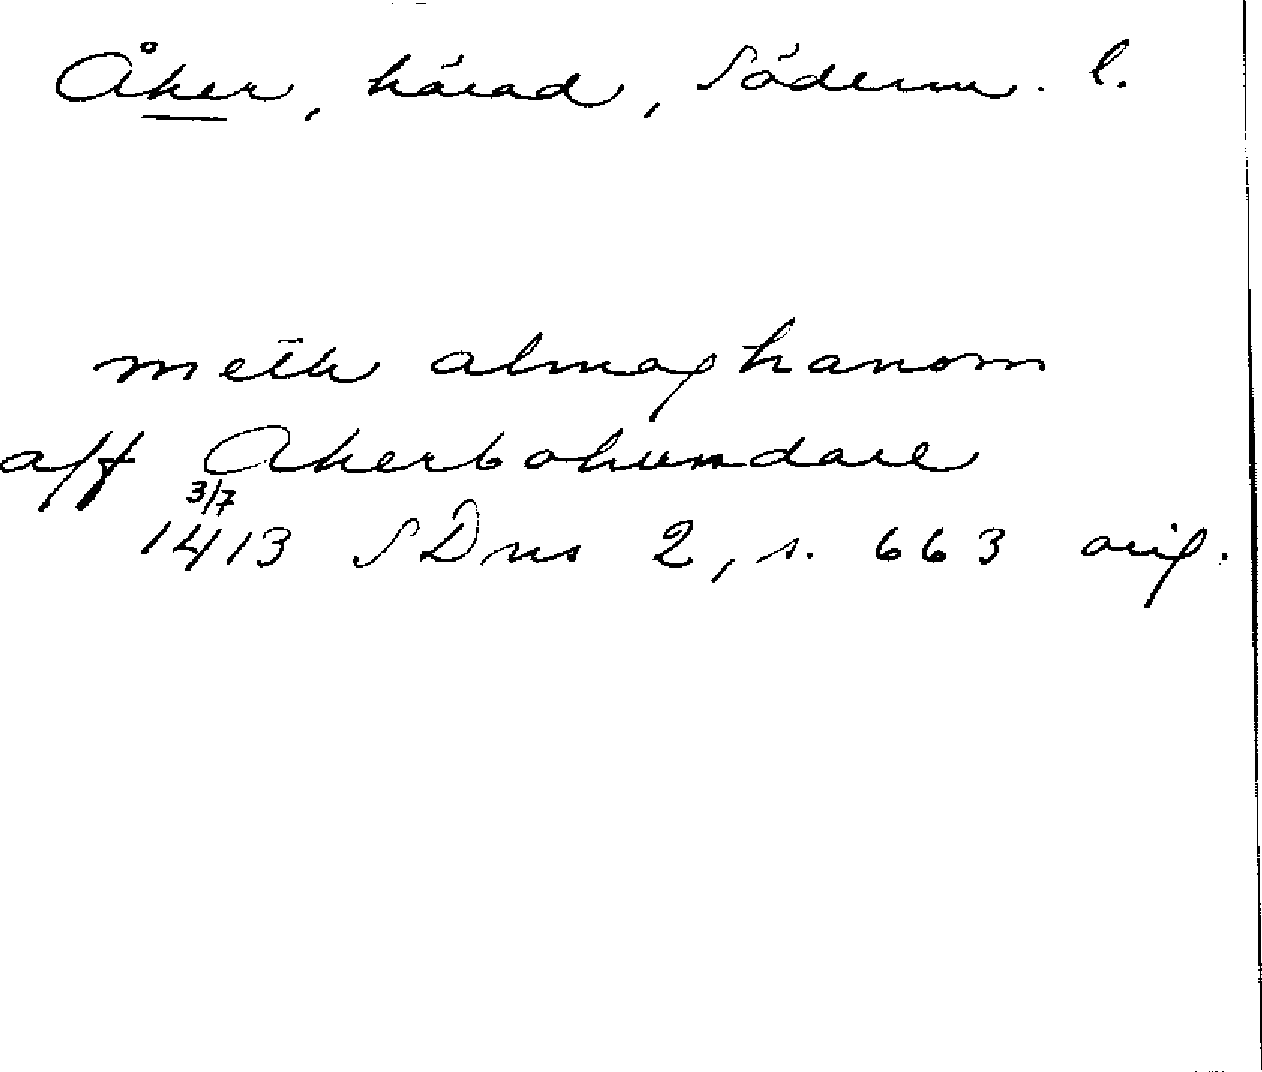 Åker, härad, Söderm. l.
meth almoghanom
aff Akerbohundare
3/7
1413 SDns 2, s. 663 orig.